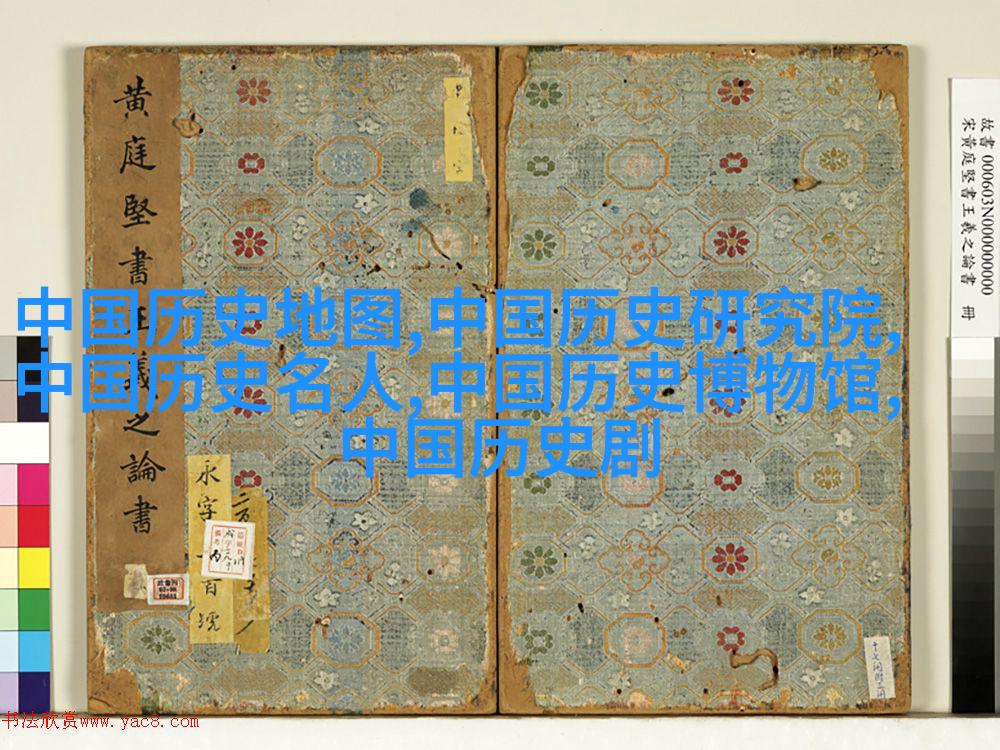 中国历史地图,中国历史研究院,
中国历史名人,中国历史博物馆,
中国历史剧
黄庭堅書王羲之論書
永字 百號
故書 000603N000000000
宋黃庭堅書王羲之論書 冊
书法欣赏www.yac8.com